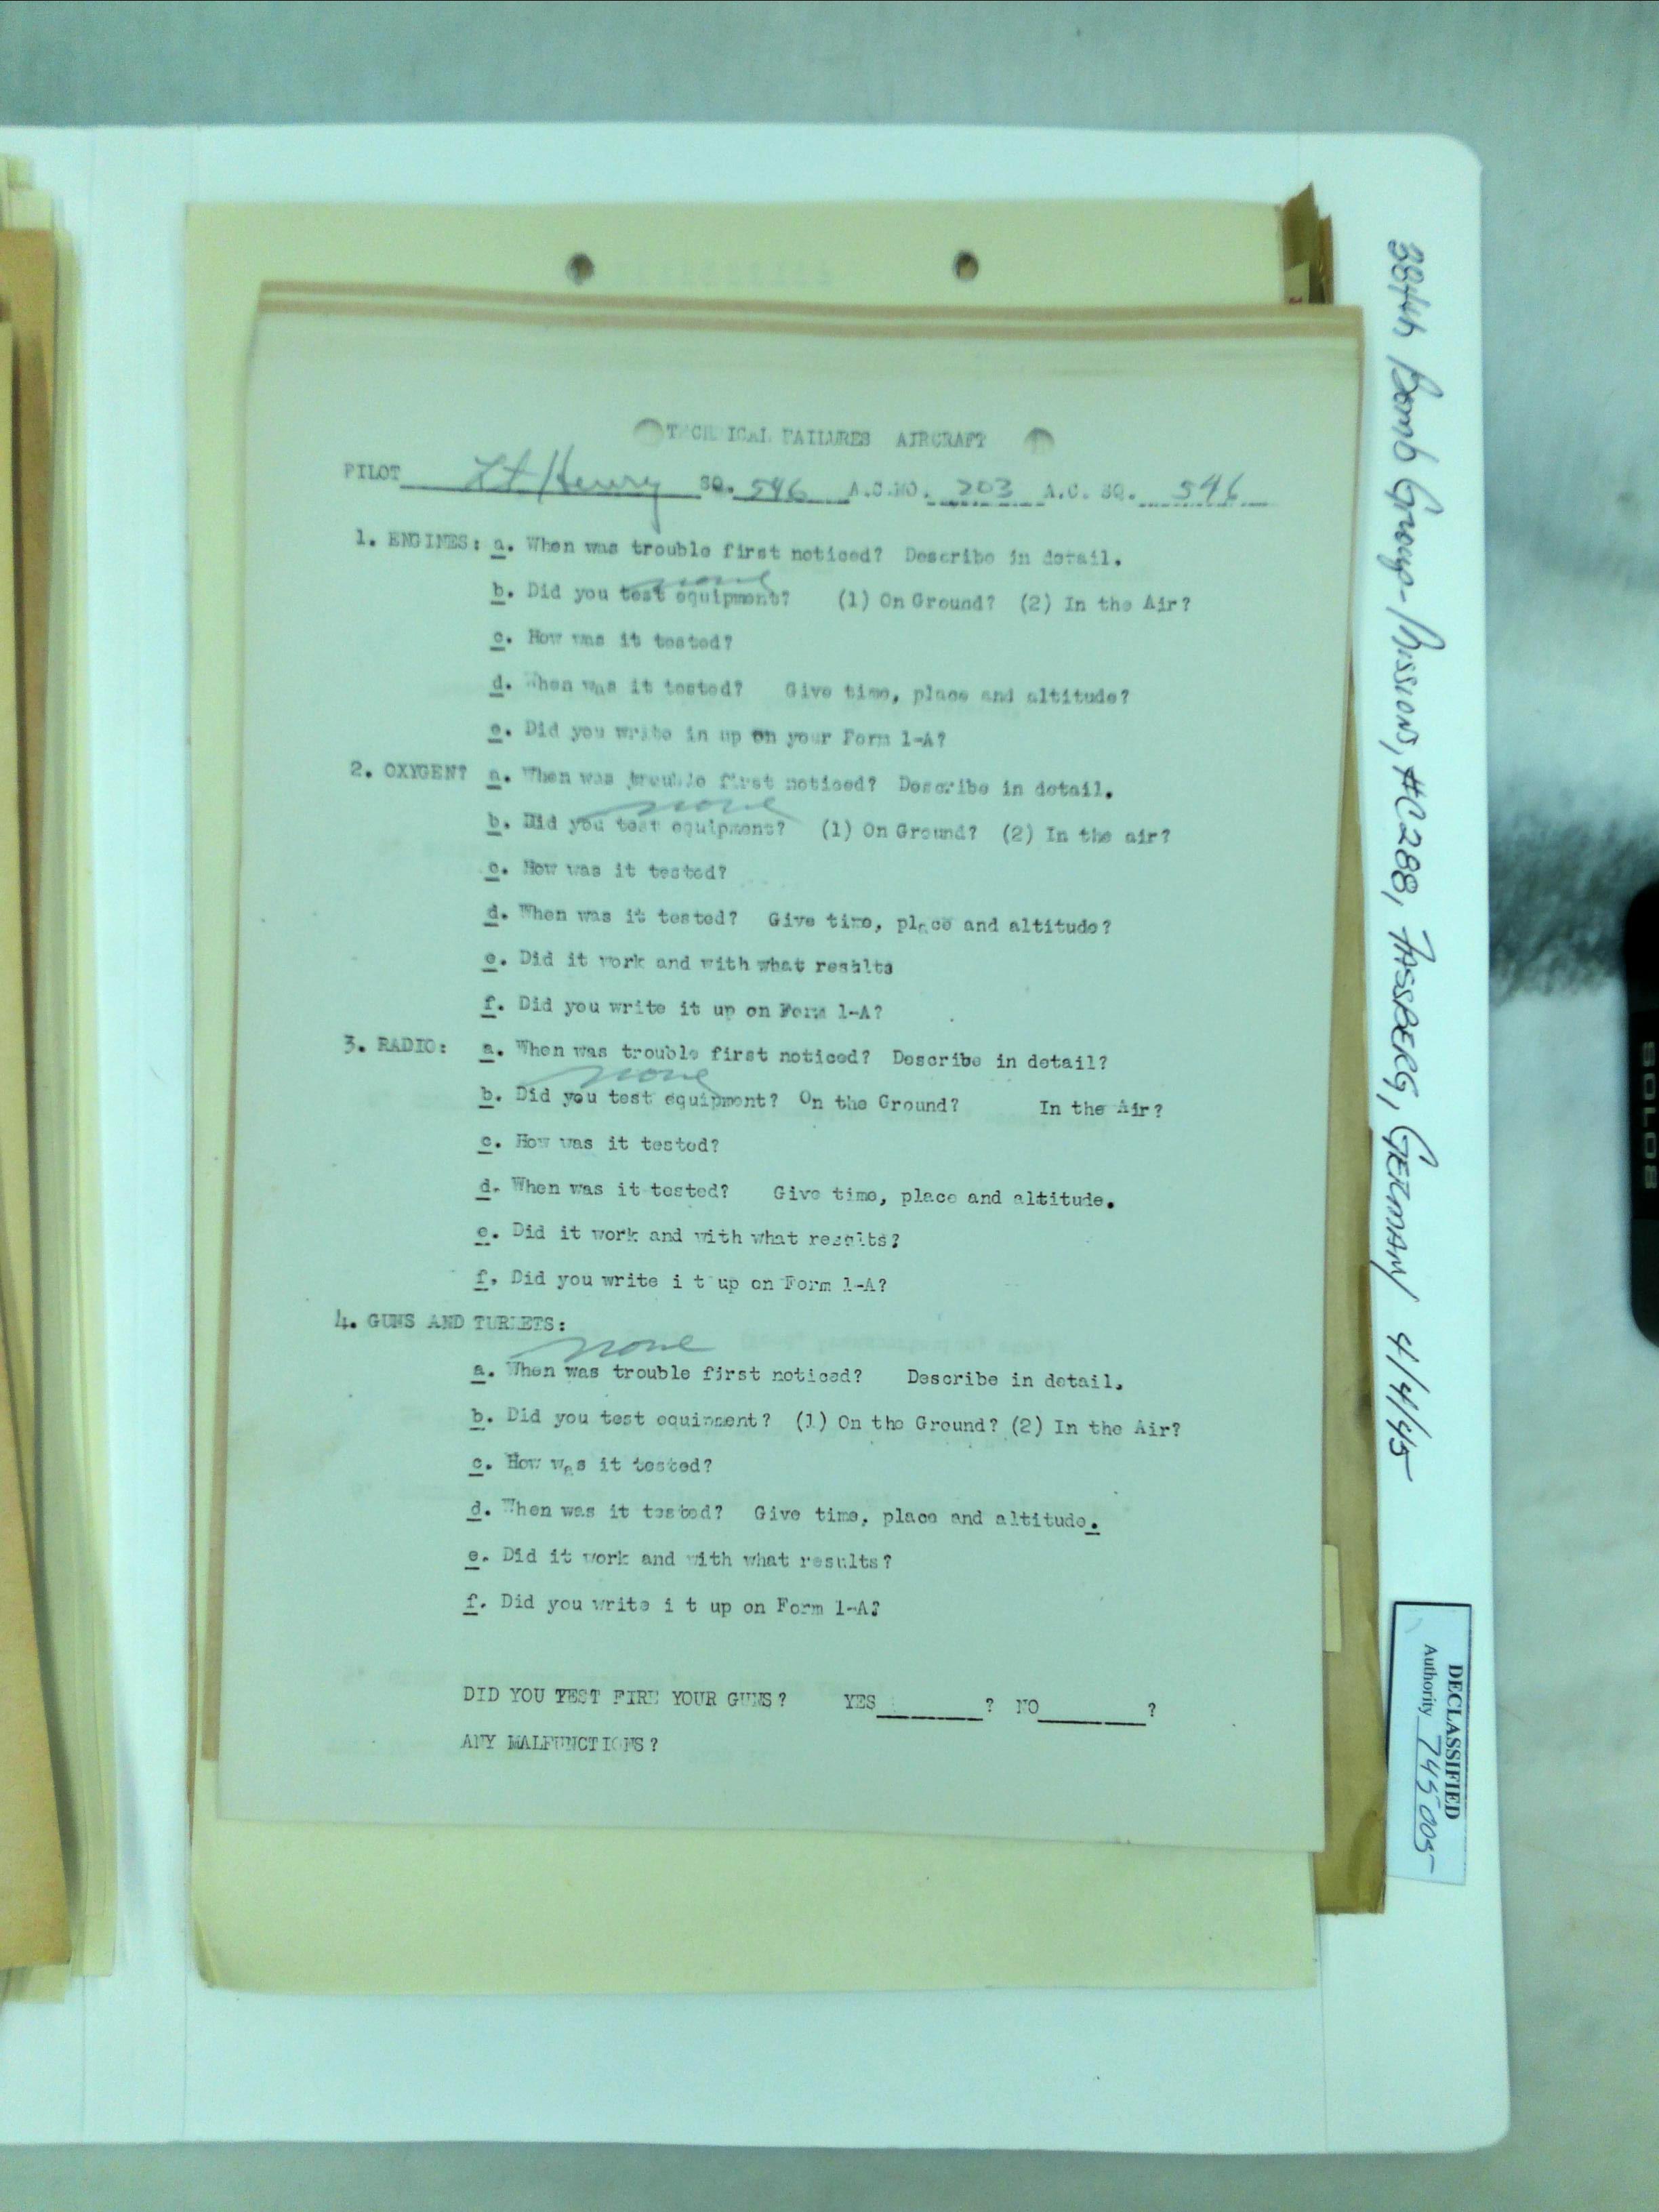 TECHNICAL FAILURES AIRCRAFT
PILOT Lt Henry SQ. 546 A.C.NO. 203 A.C. SQ. 546
1. ENGINES: a. When was trouble first noticed? Describe in detail.
none
b. Did you test equipment? (1) On Ground? (2) In the Air?
c. How was it tested?
d. When was it tested? Give time, place and altitude?
e. Did you write in up on your Form 1-A?
2. OXYGEN? a. When was trouble first noticed? Describe in detail.
none
b. Did you test equipment? (1) On Ground? (2) In the air?
c. How was it tested?
d. When was it tested? Give time, place and altitude?
e. Did it work and with what results
f. Did you write it up on Form 1-A?
3. RADIO: a. When was trouble first noticed? Describe in detail?
none
b. Did you test equipment? On the Ground? In the Air?
c. How was it tested?
d. When was it tested? Give time, place and altitude.
e. Did it work and with what results?
f. Did you write i t up on Form 1-A?
4. GUNS AND TURRETS:
none
a. When was trouble first noticed? Describe in detail.
b. Did you test equipment? (1) On the Ground? (2) In the Air?
c. How was it tested?
d. When was it tested? Give time, place and altitude.
e. Did it work and with what results?
f. Did you write i t up on Form 1-A?
DID YOU TEST FIRE YOUR GUNS? YES ? NO ?
ANY MALFUNCTIONS?
384th Bomb Group-Missions, #C288, FASSBERG, GERMANY 4/4/45
DECLASSIFIED
Authority 745005
SOLOS